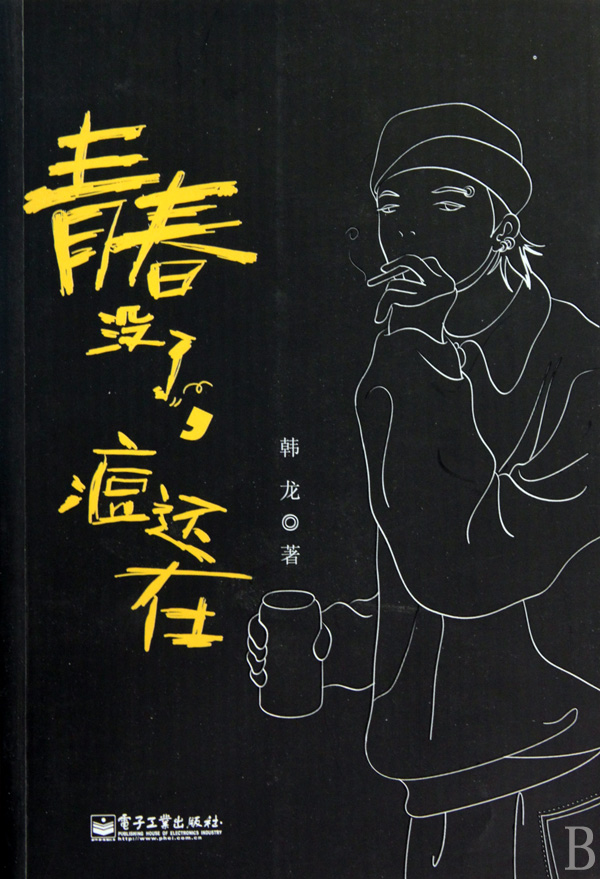 青春
没了，
痘还在
韩龙◎著
電子工業出版社
PUBLISHING HOUSE OF ELECTRONICS INDUSTRY
http://www.phei.com.cn
B